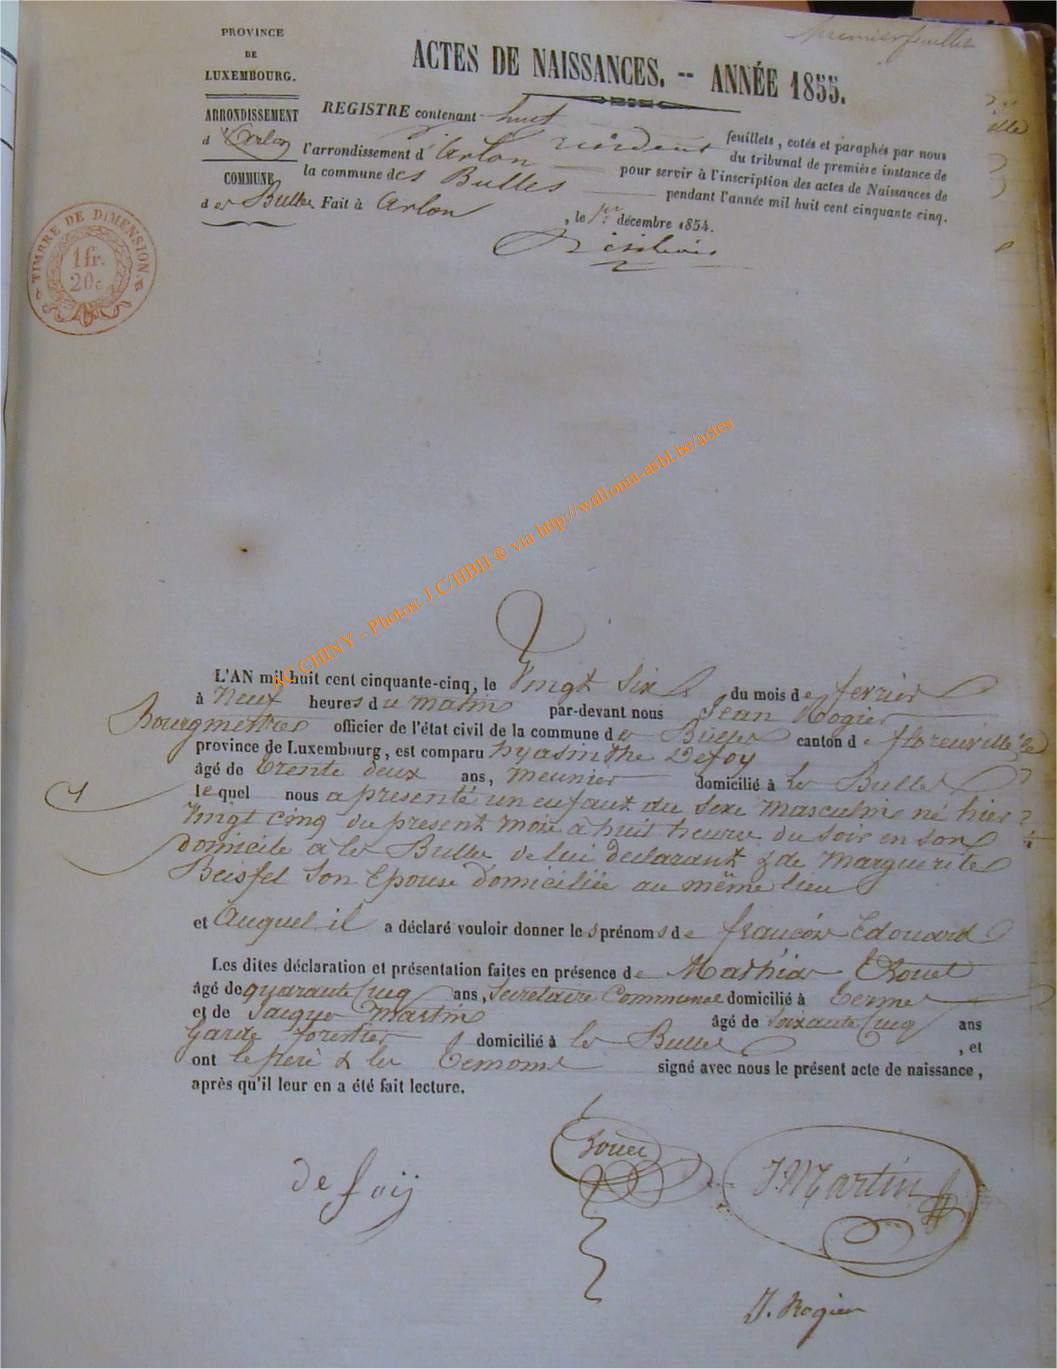 premier feuillet
PROVINCE
DE
LUXEMBOURG.
ARRONDISSEMENT
d'Arlon
COMMUNE
des Bulles
TIMBRE DE DIMENSION
1 fr.
20 c
ACTES DE NAISSANCES. -- ANNÉE 1855.
REGISTRE contenant huit feuillets, cotés et paraphés par nous
président du tribunal de première instance de
l'arrondissement d'Arlon pour servir à l'inscription des actes de Naissances de
la commune des Bulles pendant l'année mil huit cent cinquante cinq.
Fait à Arlon, le 1er décembre 1854.
AC CHINY - Photos: J.C/HBH ® via http://wallonia-asbl.be/actes
1
L'AN mil huit cent cinquante-cinq, le Vingt Six du mois de fevrier
à Neuf heures du matin par-devant nous Jean Rogier
Bourgmestre officier de l'état civil de la commune des Bulles canton de florenville
province de Luxembourg, est comparu hyasinthe Defoy
âgé de trente deux ans, meunier domicilié à les Bulles
lequel nous a présenté un enfant du sexe masculin né hier
Vingt cinq du present mois à huit heures du soir en son
domicile a les Bulles de lui declarant & de Marguerite
son Epouse domiciliée au même lieu
et Auquel il a déclaré vouloir donner les prénoms de françois Edouard
Les dites déclaration et présentation faites en présence de Mathias
âgé de quarante cinq ans, Secretaire Communal domicilié à termes
et de Jacques Martin âgé de soixante cinq ans
Garde forestier domicilié à les Bulles, et
ont le père & les temoins signé avec nous le présent acte de naissance,
après qu'il leur en a été fait lecture.
de foij
J. Martin
J. Rogier